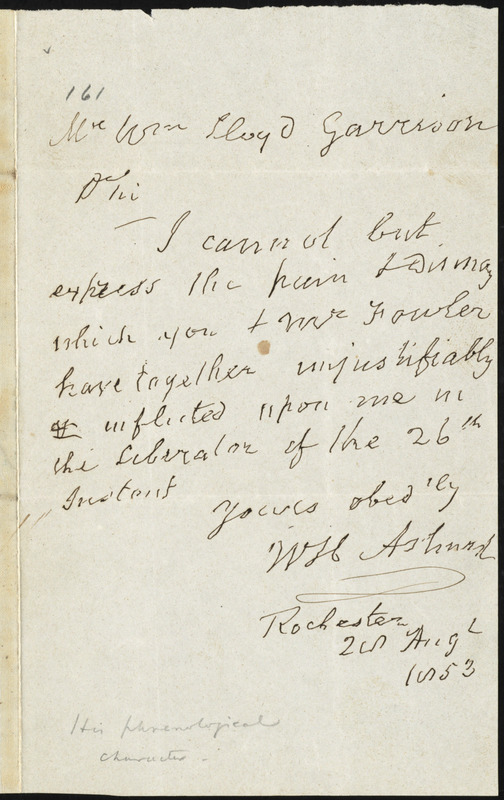 161
Mr Wm Lloyd Garrison
Dr Sir
I cannot but
express the pain & Dismay
which you & Mr Fowler
have together unjustifiably
inflicted upon me in
the Liberator of the 26th
Instant
Yours obed'ly
WH Ashurst
Rochester
28 Augt
1853
His phrenological
character.